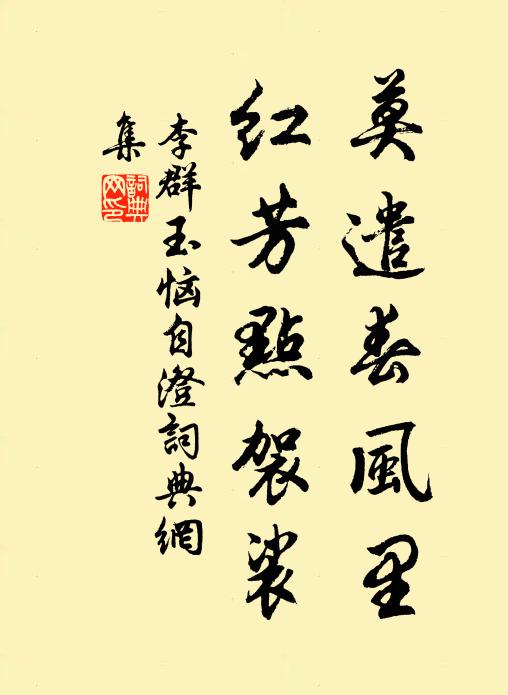 莫遣春風里
紅芳點袈裟
李群玉恼自澄詞典網
集
詞典網印